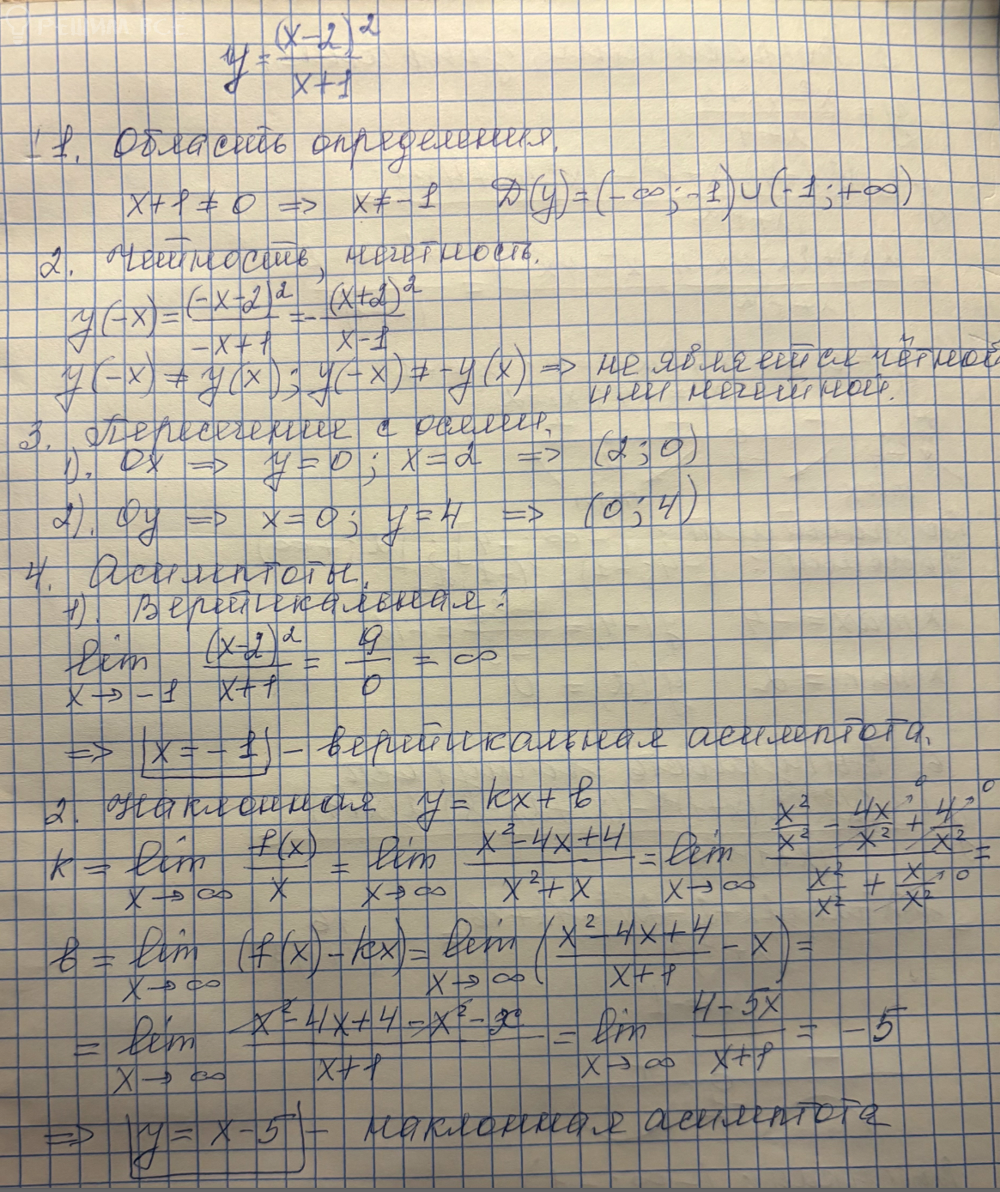 y = (x-2)² / (x+1)
1. Область определения.
x+1≠0 => x≠-1 D(y)=(-∞;-1)∪(-1;+∞)
2. Чётность, нечетность.
y(-x) = (-x-2)² / (-x+1) = - (x+2)² / (x-1)
y(-x) ≠ y(x); y(-x) ≠ -y(x) => не является чётной
или нечетной.
3. Пересечение с осями.
1). Ox => y=0; x=2 => (2;0)
2). Oy => x=0; y=4 => (0;4)
4. Асимптоты.
1). Вертикальная:
lim x→-1 (x-2)² / (x+1) = 9/0 = ∞
=> x=-1 - вертикальная асимптота.
2. Наклонная y=kx+b
k = lim x→∞ f(x)/x = lim x→∞ (x²-4x+4) / (x²+x) = lim x→∞ (x²/x² - 4x/x² →0 + 4/x² →0) / (x²/x² + x/x² →0) =
b = lim x→∞ (f(x)-kx) = lim x→∞ ((x²-4x+4) / (x+1) - x) =
= lim x→∞ (x²-4x+4-x²-x) / (x+1) = lim x→∞ (4-5x) / (x+1) = -5
=> y=x-5 - наклонная асимптота